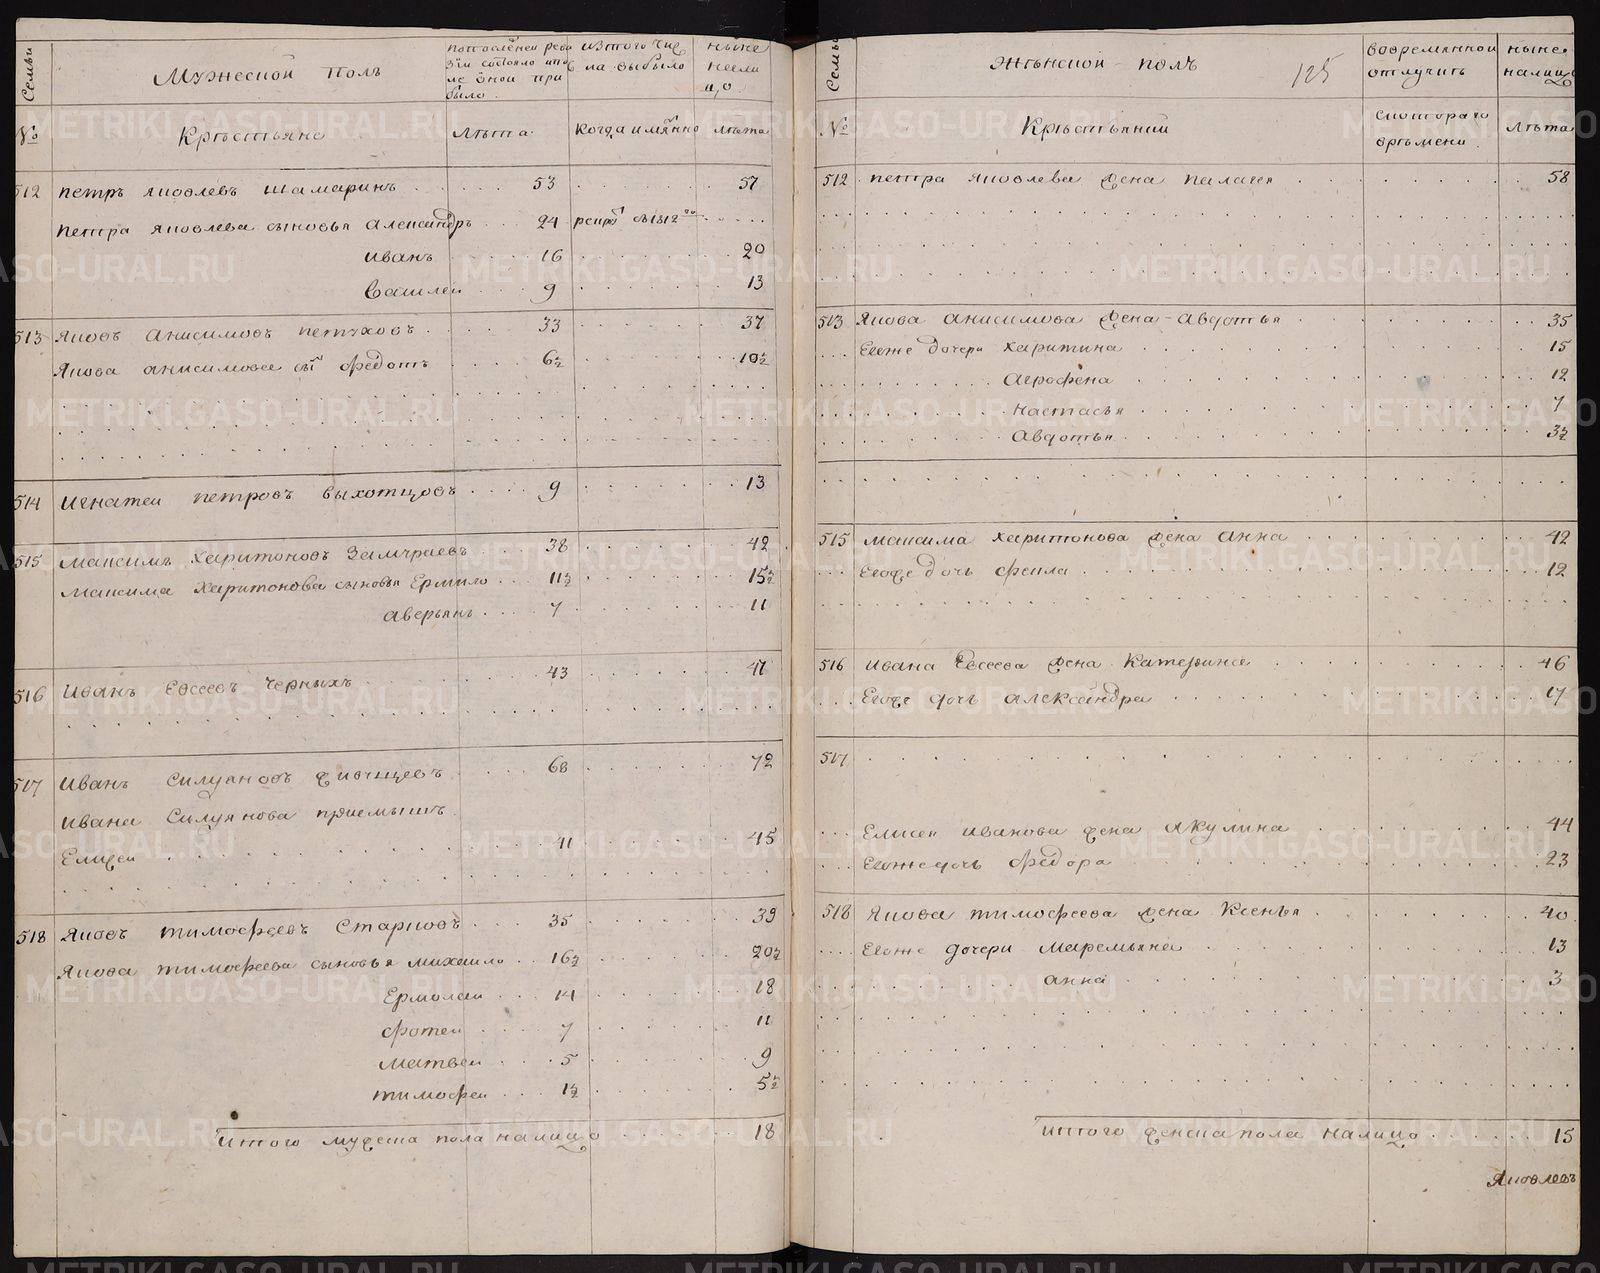 Семьи
Мужеской полъ
По последней ревизіи состояло и после оной прибыло
Изъ того числа выбыло
Ныне на лицо
№
Крестьяне
Лѣта
Когда имянно
Лѣта
512 Петръ Яковлевъ Шамаринъ 53 57
Петра Яковлева сыновья Александръ 24 рекру въ 1812
Иванъ 16 20
Василеи 9 13
513 Яковъ Анисимовъ Петуховъ 33 37
Якова Анисимова сы Федотъ 6½ 10½
514 Игнатеи Петровъ Выхотцовъ 9 13
515 Максимъ Харитоновъ Замураевъ 38 42
Максима Харитонова сыновья Ермило 11½ 15½
Аверьянъ 7 11
516 Иванъ Евсеевъ Черныхъ 43 47
517 Иванъ Силуяновъ 68 72
Ивана Силуянова приемышъ
Елисеи 41 45
518 Яковъ Тимофеевъ Старковъ 35 39
Якова Тимофеева сыновья Михаило 16½ 20½
Ермолаи 14 18
Фотеи 7 11
Матвеи 5 9
Тимофеи 1½ 5½
Итого мужеска пола на лицо 18
Семьи
Женской полъ
125
Во временной отлучкѣ
Ныне на лицо
№
Крестьянки
Съ котораго времени
Лѣта
512 Петра Яковлева жена Палагея 58
513 Якова Анисимова жена Авдотья 35
Ево же дочери Харитина 15
Агрофена 12
Настасья 7
Авдотья 3½
515 Максима Харитонова жена Анна 42
Евоже дочь Фекла 12
516 Ивана Евсеева жена Катерина 46
Евоже дочь Александра 17
517
Елисея Иванова жена Акулина 44
Евоже дочь Федора 23
518 Якова Тимофеева жена Ксенья 40
Евоже дочери Маремьяна 13
Анна 3
Итого женска пола на лицо 15
Яковлевъ
METRIKI.GASO-URAL.RU